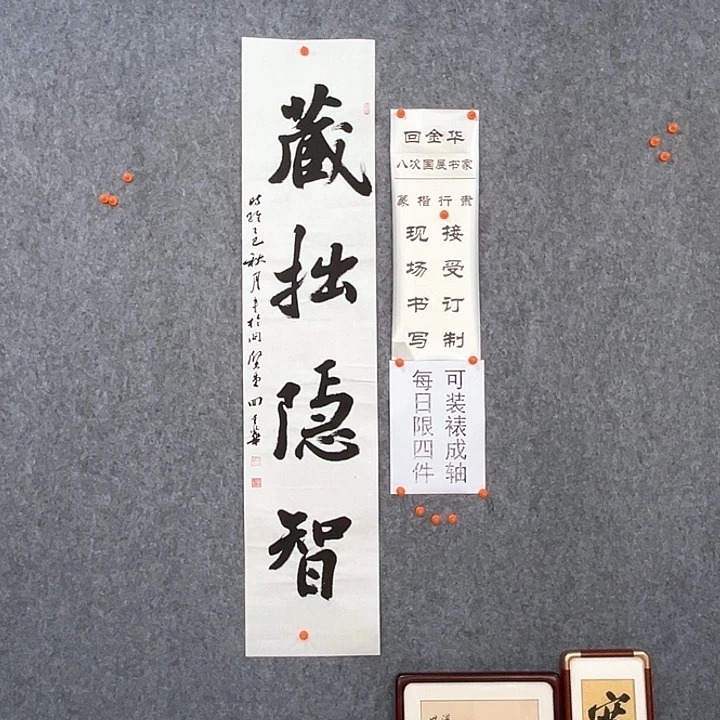 藏拙隐智
时维乙巳秋月
回金华
八次国展书家
篆楷行隶
接受订制
现场书写
可装裱成轴
每日限四件